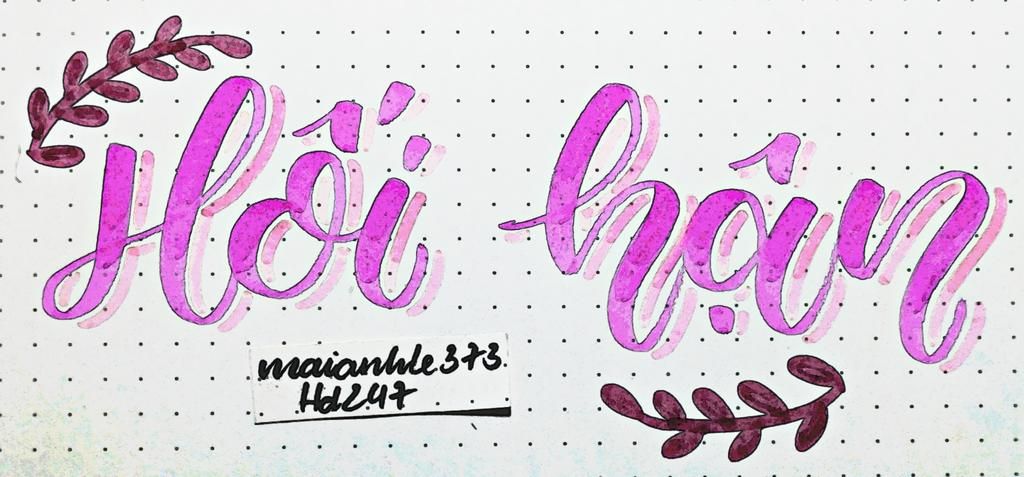 Hối hận
maianhle373
Hd247